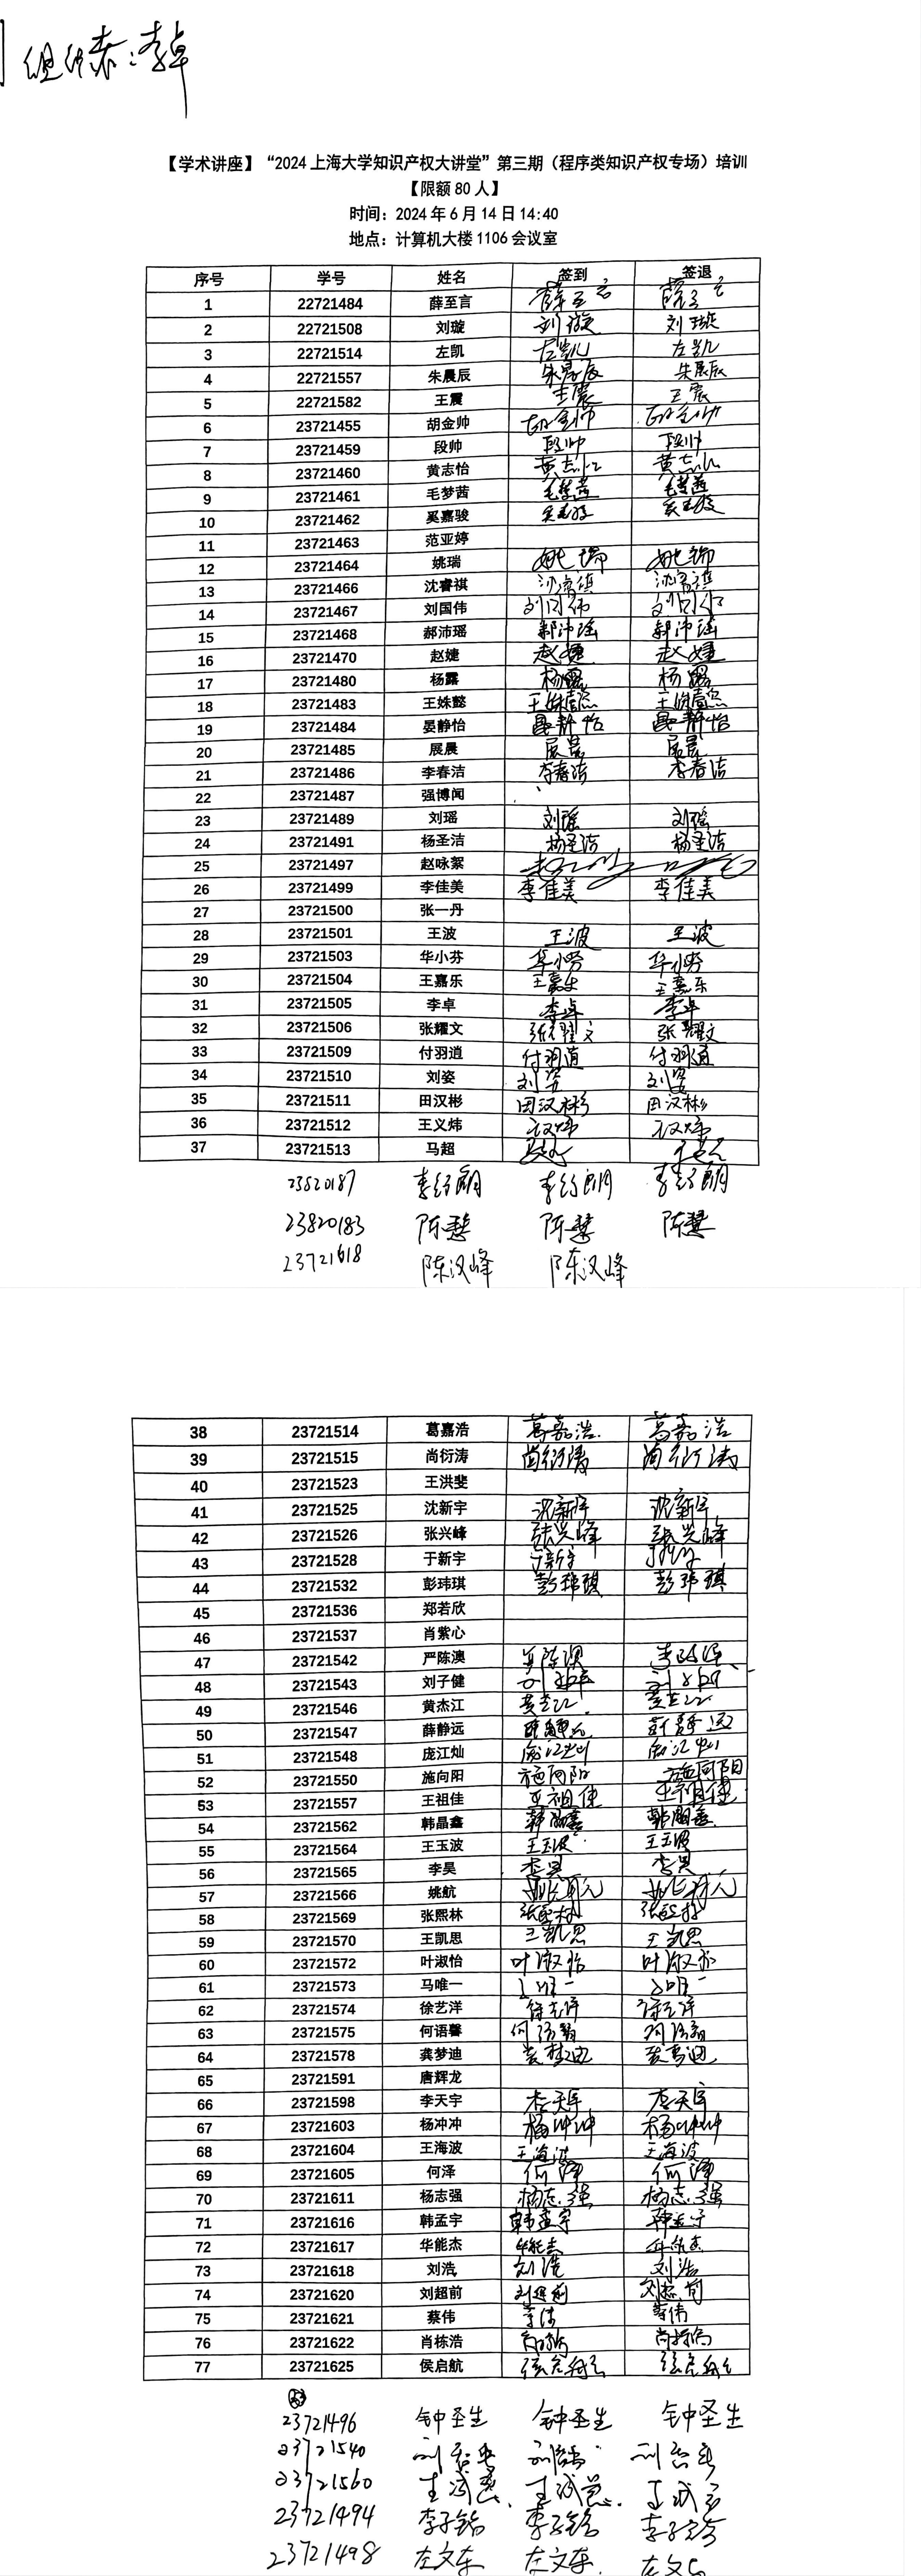 组织表：李卓
【学术讲座】“2024上海大学知识产权大讲堂”第三期（程序类知识产权专场）培训
【限额80人】
时间：2024年6月14日14:40
地点：计算机大楼1106会议室
序号 学号 姓名 签到 签退
1 22721484 薛至言 薛至言 薛至言
2 22721508 刘璇 刘璇 刘璇
3 22721514 左凯 左凯 左凯
4 22721557 朱晨辰 朱晨辰 朱晨辰
5 22721582 王震 王震 王震
6 23721455 胡金帅 胡金帅 胡金帅
7 23721459 段帅 段帅 段帅
8 23721460 黄志怡 黄志怡 黄志怡
9 23721461 毛梦茜 毛梦茜 毛梦茜
10 23721462 奚嘉骏 奚嘉骏 奚嘉骏
11 23721463 范亚婷
12 23721464 姚瑞 姚瑞 姚瑞
13 23721466 沈睿祺 沈睿祺 沈睿祺
14 23721467 刘国伟 刘国伟 刘国伟
15 23721468 郝沛瑶 郝沛瑶 郝沛瑶
16 23721470 赵婕 赵婕 赵婕
17 23721480 杨露 杨露 杨露
18 23721483 王姝懿 王姝懿 王姝懿
19 23721484 晏静怡 晏静怡 晏静怡
20 23721485 展晨 展晨 展晨
21 23721486 李春洁 李春洁 李春洁
22 23721487 强博闻
23 23721489 刘瑶 刘瑶 刘瑶
24 23721491 杨圣洁 杨圣洁 杨圣洁
25 23721497 赵咏絮
26 23721499 李佳美 李佳美 李佳美
27 23721500 张一丹
28 23721501 王波 王波 王波
29 23721503 华小芬 华小芬 华小芬
30 23721504 王嘉乐 王嘉乐 王嘉乐
31 23721505 李卓 李卓 李卓
32 23721506 张耀文 张耀文 张耀文
33 23721509 付羽逍 付羽逍 付羽逍
34 23721510 刘姿 刘姿 刘姿
35 23721511 田汉彬 田汉彬 田汉彬
36 23721512 王义炜 王义炜 王义炜
37 23721513 马超 马超 马超
23820187 李绍朗 李绍朗 李绍朗
23820183 陈慧 陈慧 陈慧
23721618 陈汉峰 陈汉峰
38 23721514 葛嘉浩 葛嘉浩 葛嘉浩
39 23721515 尚衍涛 尚衍涛 尚衍涛
40 23721523 王洪斐
41 23721525 沈新宇 沈新宇 沈新宇
42 23721526 张兴峰 张兴峰 张兴峰
43 23721528 于新宇 于新宇 于新宇
44 23721532 彭玮琪 彭玮琪 彭玮琪
45 23721536 郑若欣
46 23721537 肖紫心
47 23721542 严陈澳 严陈澳 严陈澳
48 23721543 刘子健 刘子健 刘子健
49 23721546 黄杰江 黄杰江 黄杰江
50 23721547 薛静远 薛静远 薛静远
51 23721548 庞江灿 庞江灿 庞江灿
52 23721550 施向阳 施向阳 施向阳
53 23721557 王祖佳 王祖佳 王祖佳
54 23721562 韩晶鑫 韩晶鑫 韩晶鑫
55 23721564 王玉波 王玉波 王玉波
56 23721565 李昊 李昊 李昊
57 23721566 姚航 姚航 姚航
58 23721569 张熙林 张熙林 张熙林
59 23721570 王凯思 王凯思 王凯思
60 23721572 叶淑怡 叶淑怡 叶淑怡
61 23721573 马唯一 马唯一 马唯一
62 23721574 徐艺洋 徐艺洋 徐艺洋
63 23721575 何语馨 何语馨 何语馨
64 23721578 龚梦迪 龚梦迪 龚梦迪
65 23721591 唐辉龙
66 23721598 李天宇 李天宇 李天宇
67 23721603 杨冲冲 杨冲冲 杨冲冲
68 23721604 王海波 王海波 王海波
69 23721605 何泽 何泽 何泽
70 23721611 杨志强 杨志强 杨志强
71 23721616 韩孟宇 韩孟宇 韩孟宇
72 23721617 华能杰 华能杰 华能杰
73 23721618 刘浩 刘浩 刘浩
74 23721620 刘超前 刘超前 刘超前
75 23721621 蔡伟 蔡伟 蔡伟
76 23721622 肖栋浩 肖栋浩 肖栋浩
77 23721625 侯启航
23721496 钟圣生 钟圣生 钟圣生
23721540
23721560
23721494 李子锐 李子锐
23721498 左文东 左文东